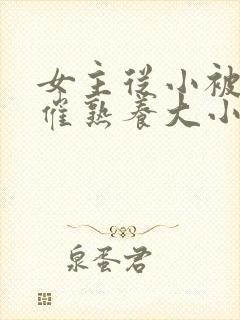 女主從小被
催熟養大小
泉蛋君